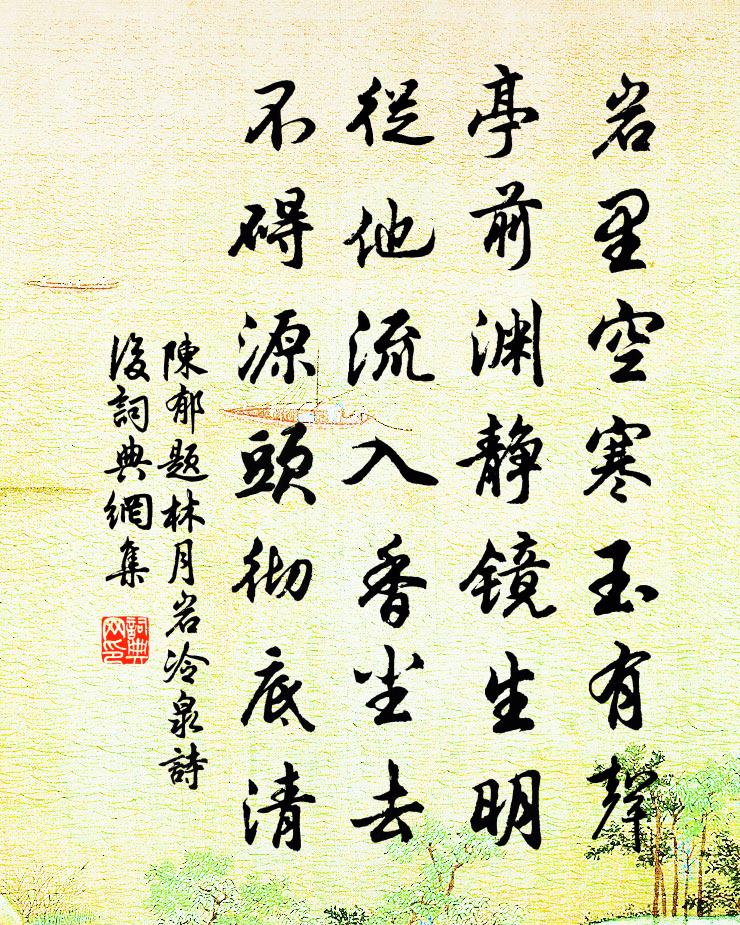 岩里空寒玉有聲
亭前渊静镜生明
從他流入香尘去
不碍源頭彻底清
陳郁題林月岩冷泉詩
後詞典網集
詞典网印